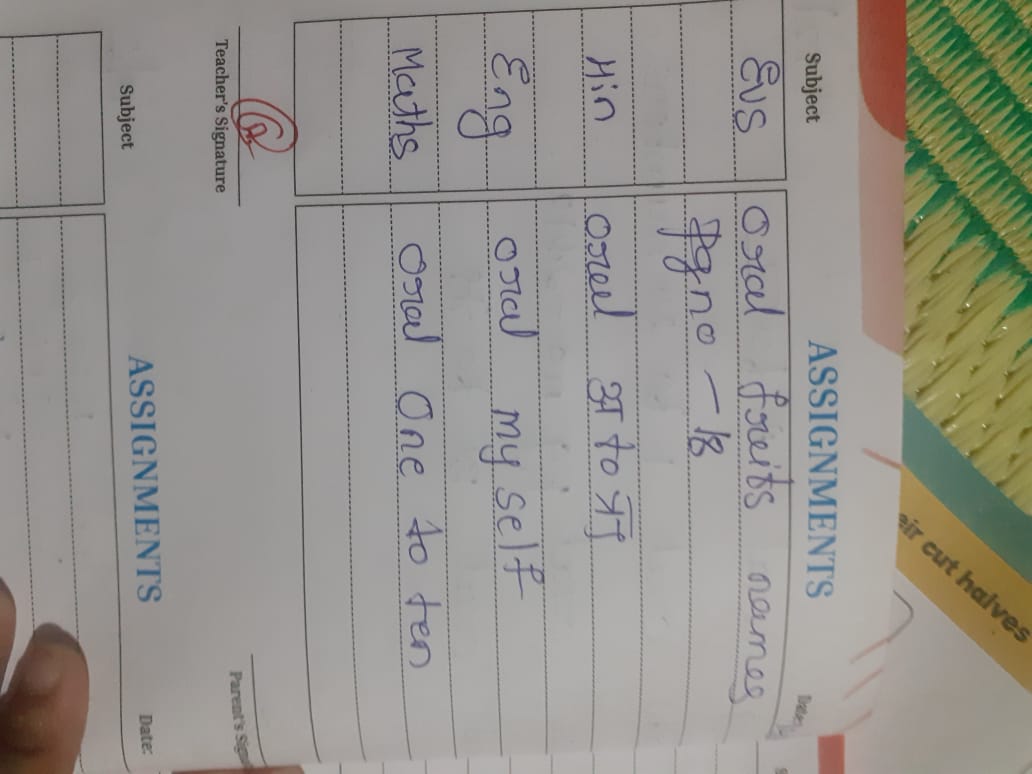 ASSIGNMENTS
Subject
Date:
Evs oral fruits names
Pgno - 18
Hin oral अ to
Eng oral my self
Maths oral One to ten
Teacher's Signature
Parent's
ASSIGNMENTS
Subject
Date:
eir cut halves